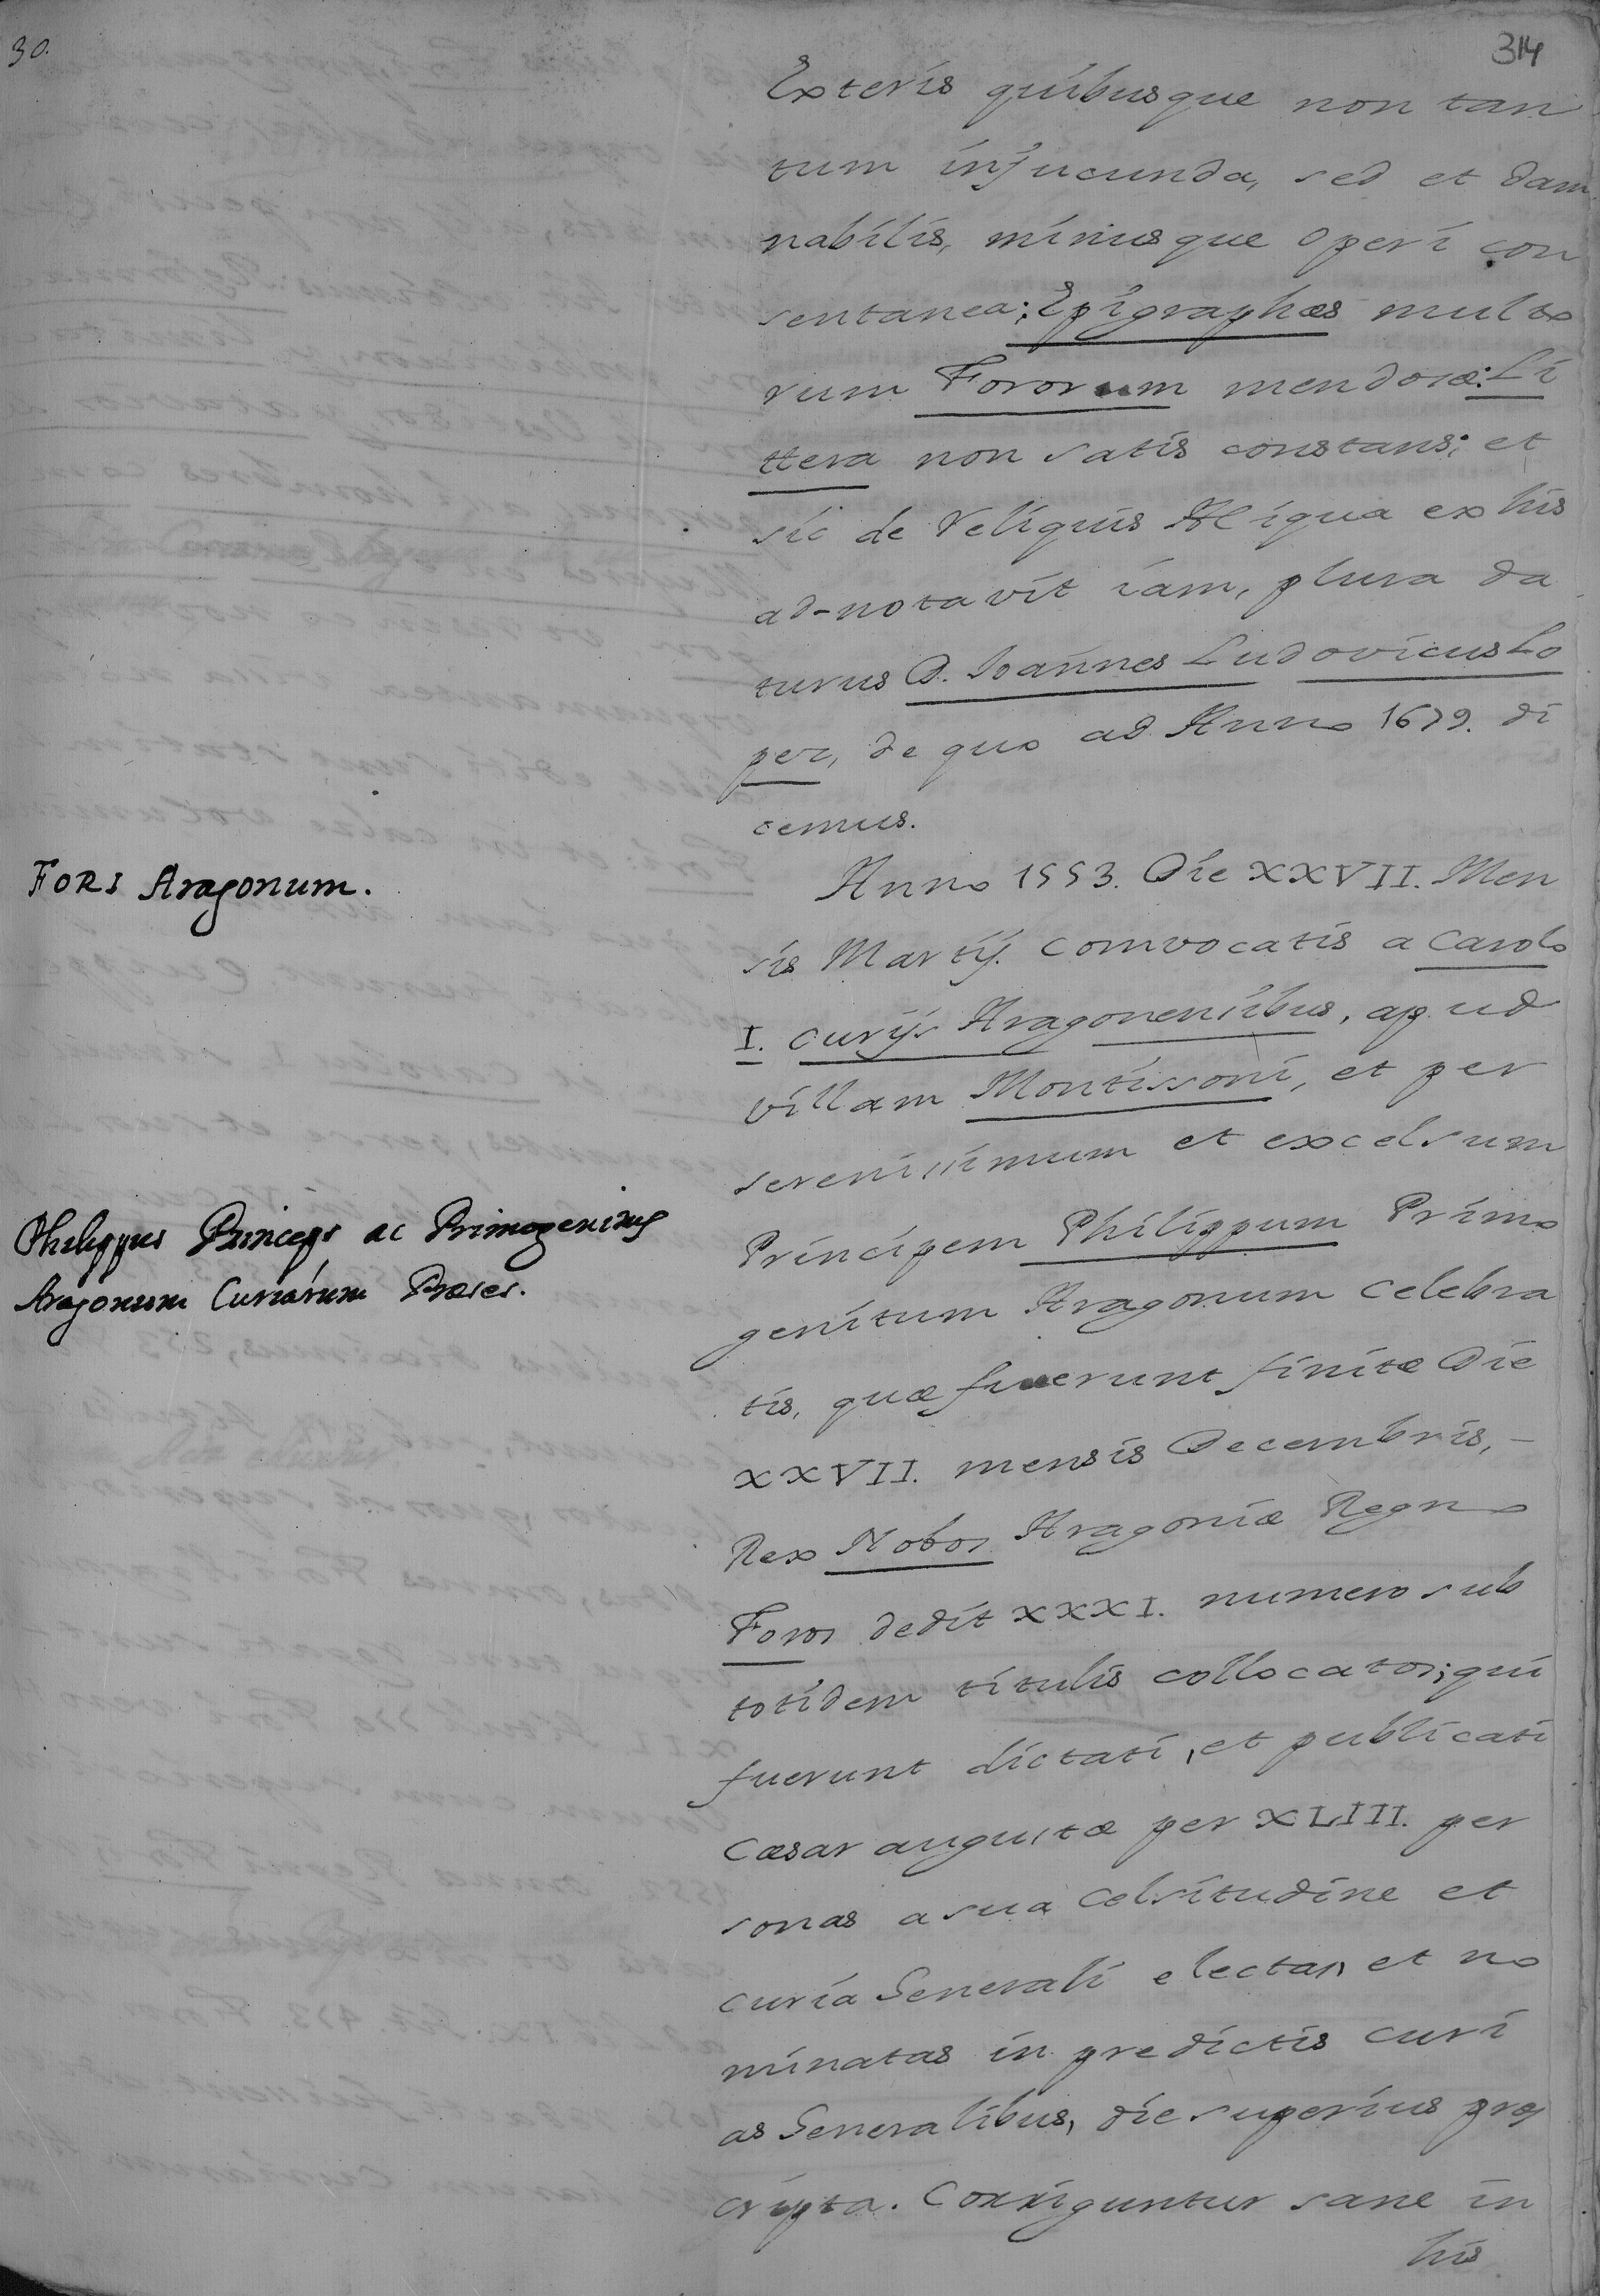 30.
314
Exteris quibusque non tan
tum injucunda, sed et dam
nabilis, minusque operi con
sentanea; Epigraphæs multo
rum Fororum mendosæ: Li
ttera non satis constans; et
sic de reliquis Aliqua ex his
ad-notavit iam, plura da
turus D. Ioannes Ludovicus Lo
pez, de quo ad Anno 1679. di
cemus.
FORI Aragonum.
Anno 1553. Die XXVII. Men
sis Martij. convocatis a Carolo
I. Curijs Aragonensibus, apud
villam Montissoni, et per
serenissimum et excelsum
Philippus Princeps ac Primogenitus
Aragonum Curiarum Præses.
Principem Philippum Primo
genitum Aragonum celebra
tis, quæ fuerunt finitæ Die
XXVII. mensis Decembris, -
Rex Nobos Aragoniæ Regno
Foros dedit XXXI. numero sub
totidem titulis collocatos; qui
fuerunt dictati, et publicati
Cæsaraugustæ per XLIII. per
sonas a sua Celsitudine et
curia Generali electas, et no
minatas in predictis curi
as Generalibus, die superius præs
cripta. Corriguntur sane in
his